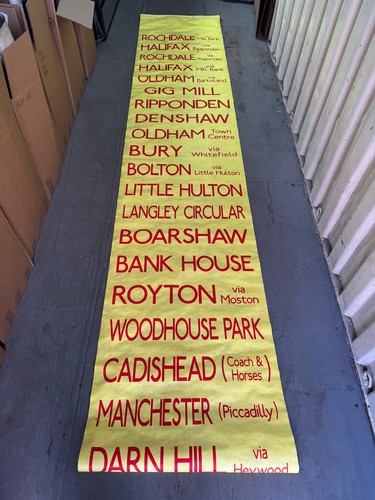 ROCHDALE via Mill Bank
HALIFAX via Ripponden
ROCHDALE via Ripponden
HALIFAX via Mill Bank
OLDHAM via Barkisland
GIG MILL
RIPPONDEN
DENSHAW
OLDHAM Town Centre
BURY via Whitefield
BOLTON via Little Hulton
LITTLE HULTON
LANGLEY CIRCULAR
BOARSHAW
BANK HOUSE
ROYTON via Moston
WOODHOUSE PARK
CADISHEAD (Coach & Horses)
MANCHESTER (Piccadilly)
DARN HILL via Heywood